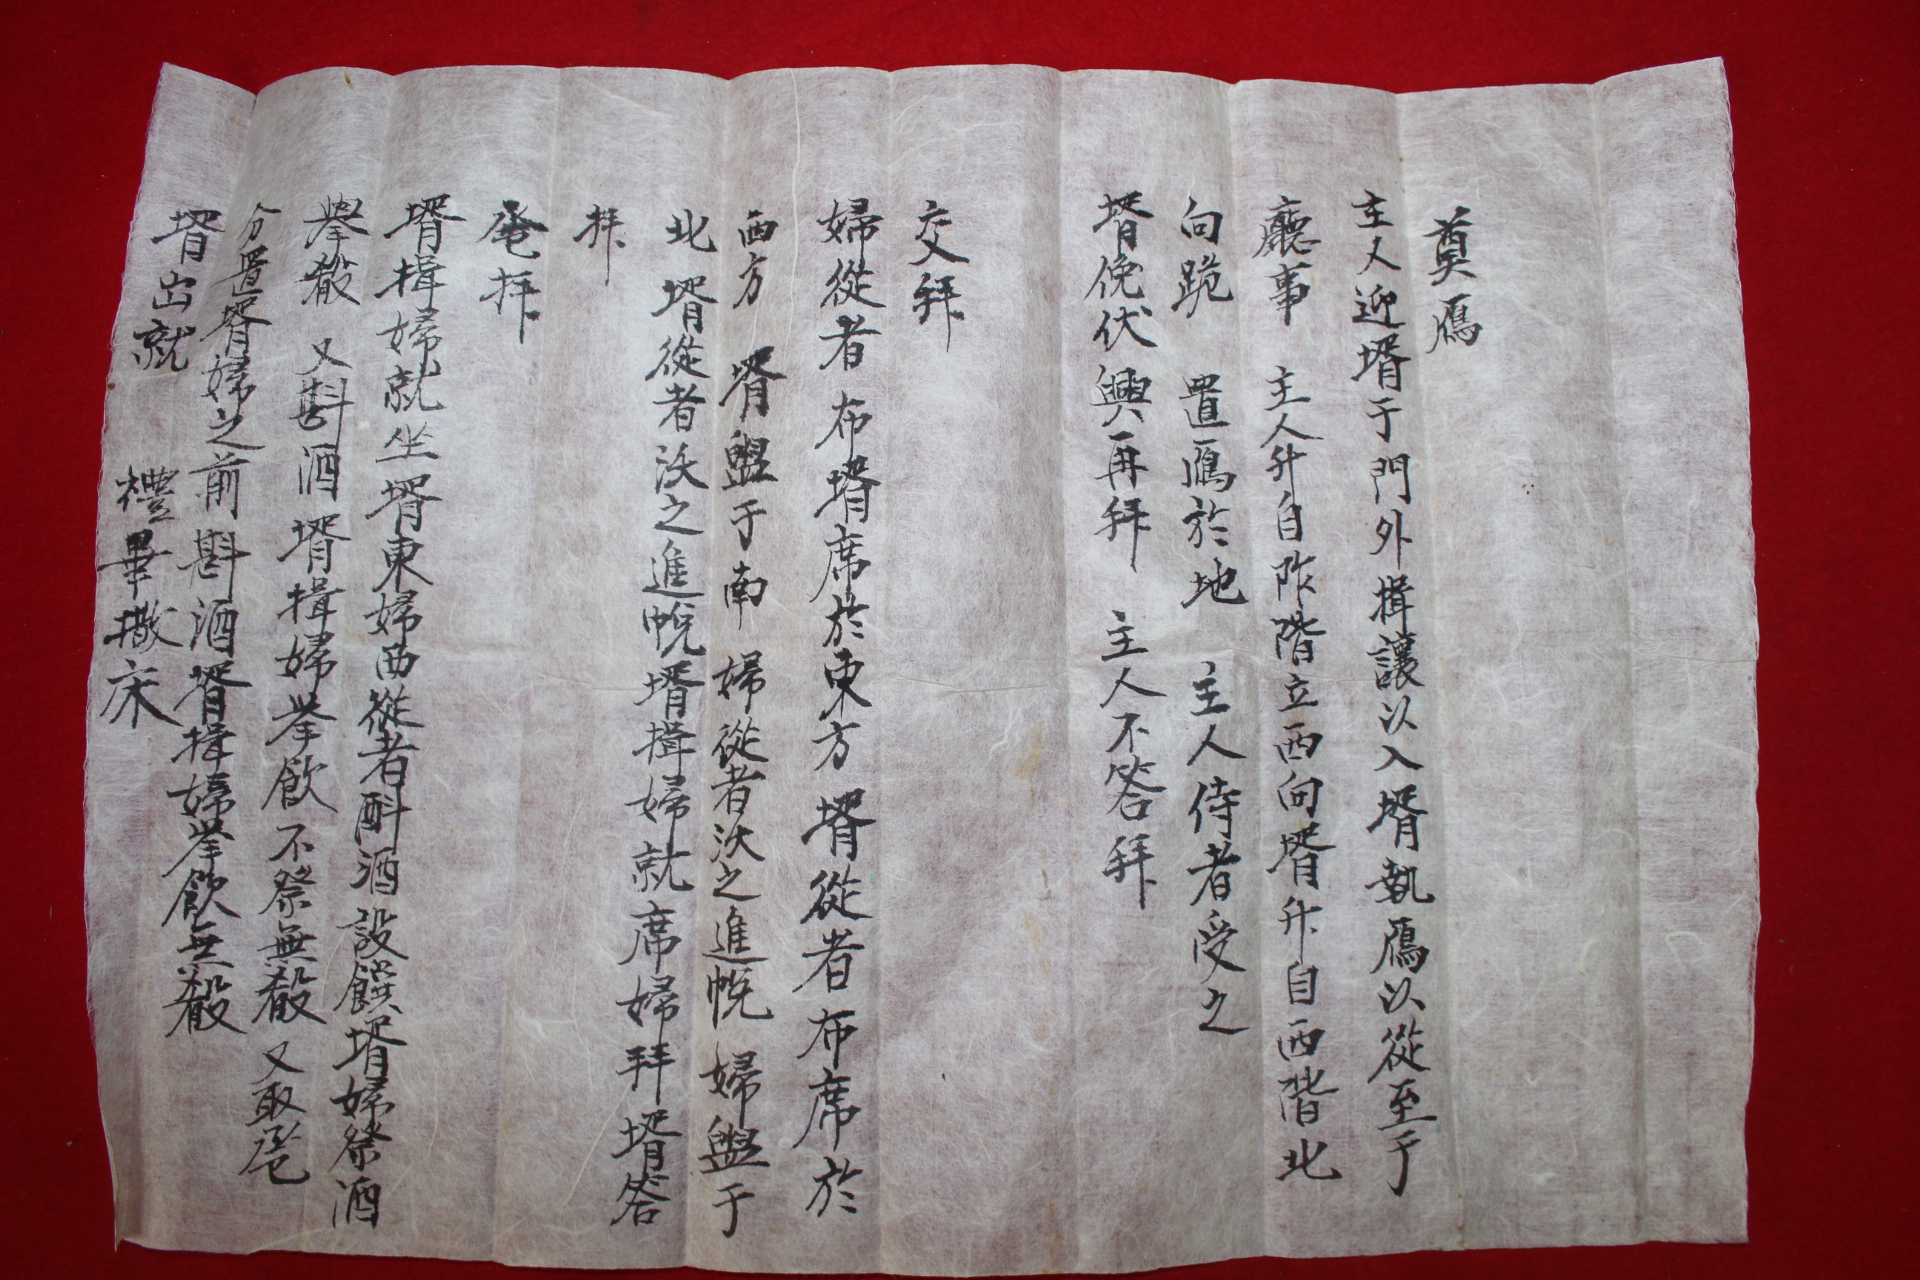 奠鴈
主人迎壻于門外揖讓以入壻執鴈以從至于
廳事 主人升自阼階立西向壻升自西階北
向跪 置鴈於地 主人侍者受之
壻俛伏興再拜 主人不答拜
交拜
婦從者布壻席於東方壻從者布席於
西方 壻盥于南 婦從者沃之進帨 婦盥于
北 壻從者沃之進帨壻揖婦就席婦拜壻答
拜
卺拜
壻揖婦就坐壻東婦西從者酙酒設饌壻婦祭酒
擧殽 又斟酒壻揖婦擧飮不祭無殽 又取卺
分置壻婦之前斟酒壻揖婦擧飮無殽
壻出就 禮畢撤床